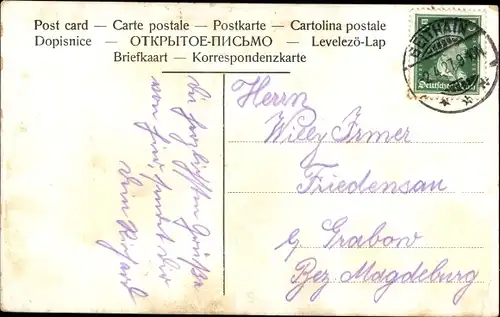 Post card — Carte postale — Postkarte — Cartolina postale
Dopisnice — ОТКРЫТОЕ-ПИСЬМО — Levelező-Lap
Briefkaart — Korrespondenzkarte
Die herzlichsten Grüße
von hier, sendet Dir
Dein Richard
Herrn
Willy Irmer
Friedensau
g. Grabow
Bez Magdeburg
Deutsches Reich